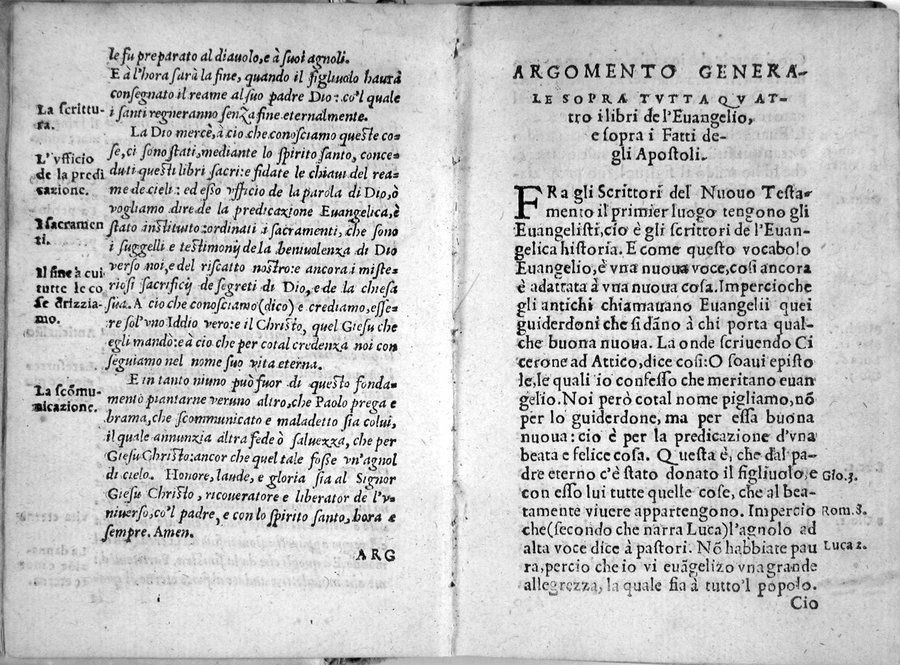 le fu preparato al diauolo, e à suoi agnoli.
E à l'hora sarà la fine, quando il figliuolo haurà
consegnato il reame al suo padre Dio: co'l quale
i santi regneranno senza fine eternalmente.
La scrittu-
ra.
La Dio mercè, à cio che conosciamo queste co-
se, ci sono stati, mediante lo spirito santo, conce-
duti questi libri sacri: e fidate le chiaui del rea-
me de cieli: ed esso vfficio de la parola di Dio, ò
vogliamo dire de la predicazione Euangelica, è
stato instituito: ordinati i sacramenti, che sono
i suggelli e testimonij de la beniuolenza di Dio
verso noi, e del riscatto nostro: e ancora i miste-
riosi sacrificij de segreti di Dio, e de la chiesa
sua. A cio che conosciamo (dico) e crediamo, esse-
re sol'vno Iddio vero: e il Christo, quel Giesu che
egli mandò: e à cio che per cotal credenza noi con
seguiamo nel nome suo vita eterna.
L'vfficio
de la predi
cazione.
I sacramen
ti.
Il fine à cui
tutte le co
se drizzia-
mo.
E in tanto niuno può fuor di questo fonda-
mento piantarne veruno altro, che Paolo prega e
brama, che scommunicato e maladetto sia colui,
il quale annunzia altra fede ò saluezza, che per
Giesu Christo: ancor che quel tale fosse vn'agnol
di cielo. Honore, laude, e gloria sia al Signor
Giesu Christo, ricoueratore e liberator de l'v-
niuerso, co'l padre, e con lo spirito santo, hora e
sempre. Amen.
La scōmu-
nicazione.
ARG
ARGOMENTO GENERA-
LE SOPRA TVTTA QVAT-
tro i libri de l'Euangelio,
e sopra i Fatti de-
gli Apostoli.
FRa gli Scrittori del Nuouo Testa-
mento il primier luogo tengono gli
Euangelisti, cio è gli scrittori de l'Euan-
gelica historia. E come questo vocabolo
Euangelio, è vna nuoua voce, così ancora
è adattata à vna nuoua cosa. Impercioche
gli antichi chiamauano Euangelii quei
guiderdoni che si dāno à chi porta qual-
che buona nuoua. La onde scriuendo Ci
cerone ad Attico, dice così: O soaui episto
le, le quali io confesso che meritano euan
gelio. Noi però cotal nome pigliamo, nō
per lo guiderdone, ma per essa buona
nuoua: cio è per la predicazione d'vna
beata e felice cosa. Questa è, che dal pa-
dre eterno c'è stato donato il figliuolo, e
con esso lui tutte quelle cose, che al bea-
tamente viuere appartengono. Impercio
che (secondo che narra Luca) l'agnolo ad
alta voce dice à pastori. Nō habbiate pau
ra, percio che io vi euāgelizo vna grande
allegrezza, la quale fia à tutto'l popolo.
Gio. 3.
Rom. 8.
Luca 2.
Cio